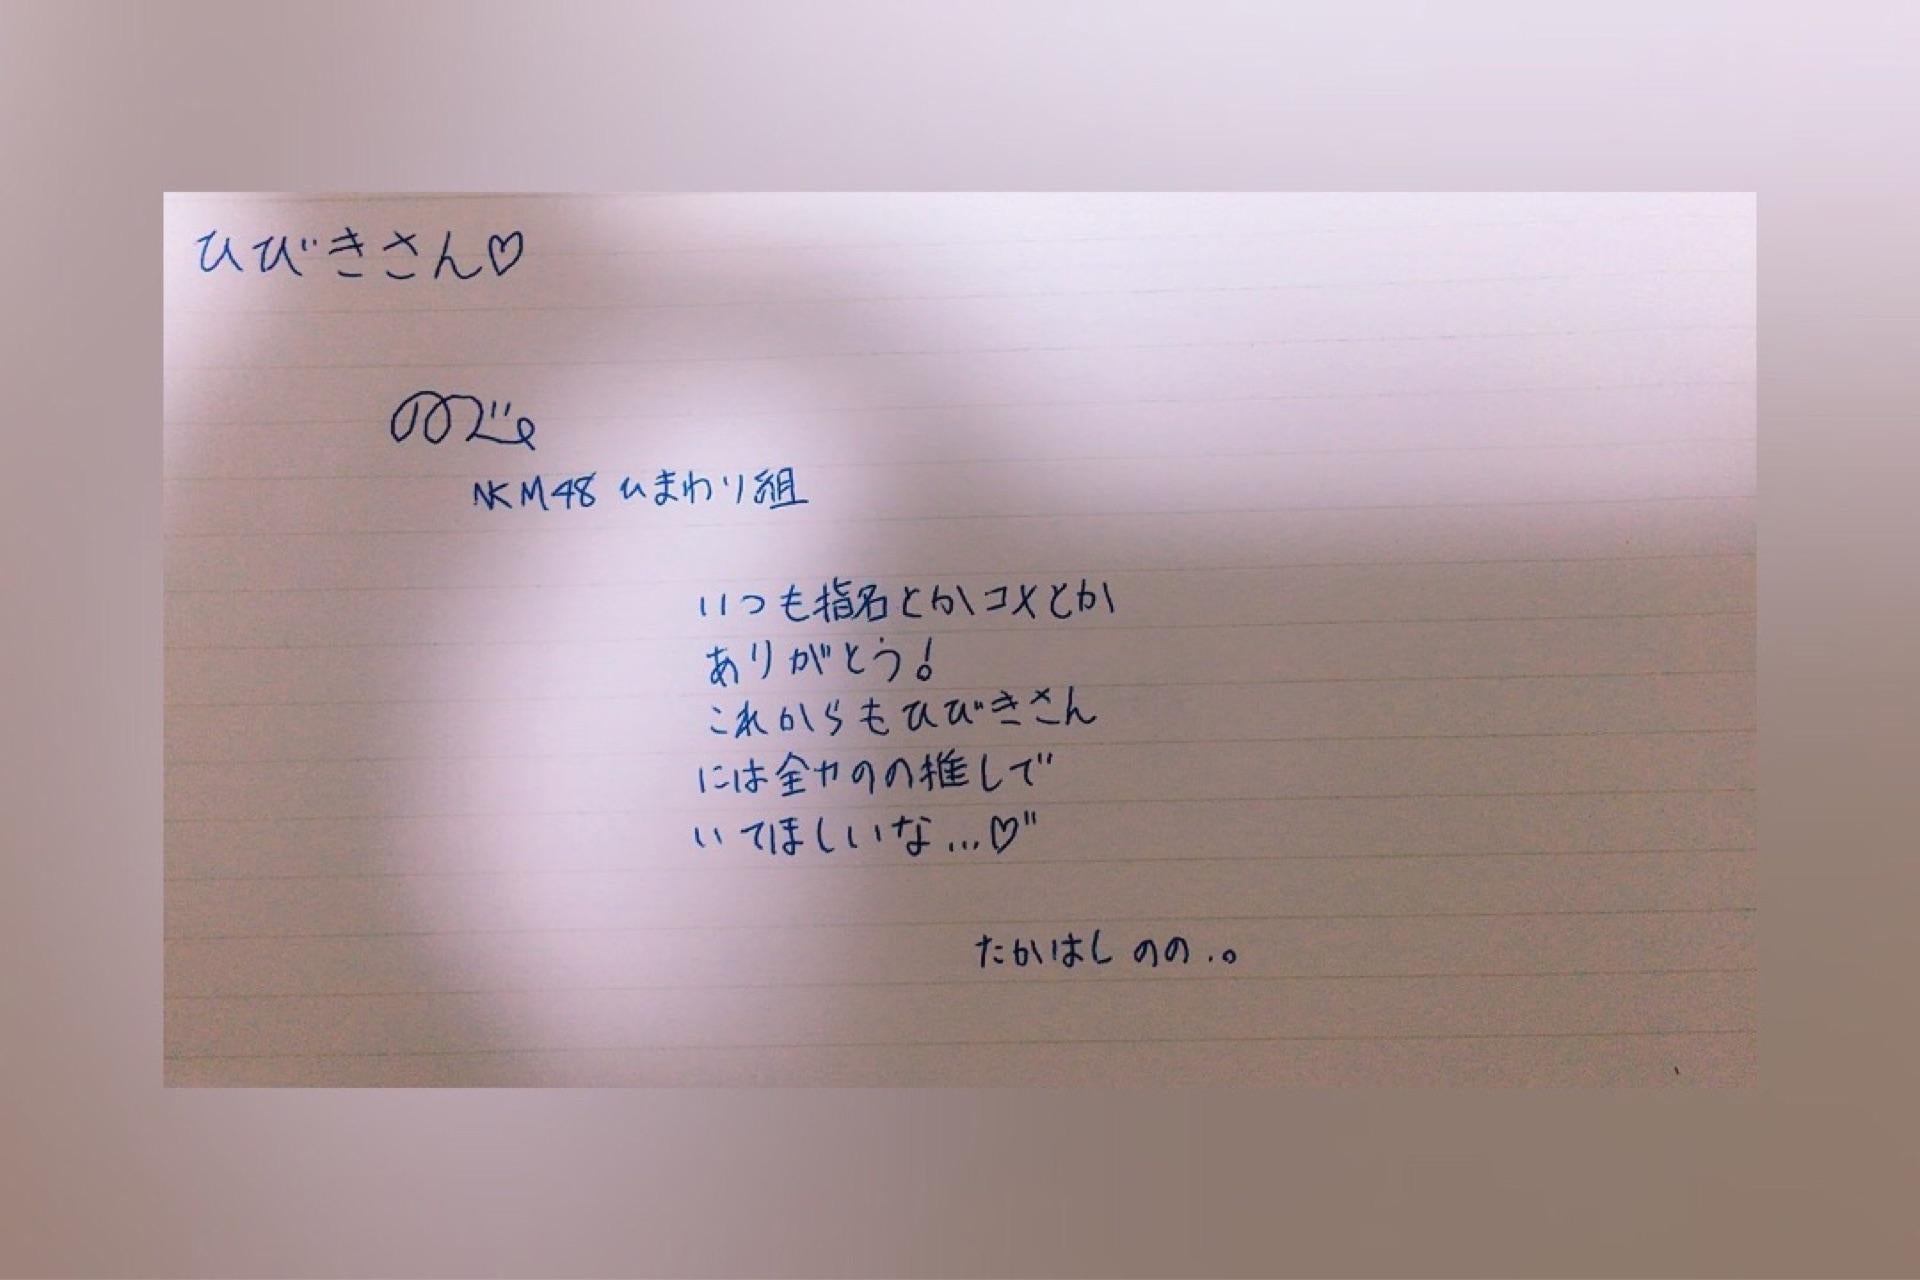 ひびきさん♡
NKM48 ひまわり組
いつも指名とかコメとか
ありがとう!
これからもひびきさん
には全力のの推しで
いてほしいな...♡"
たかはし のの.。